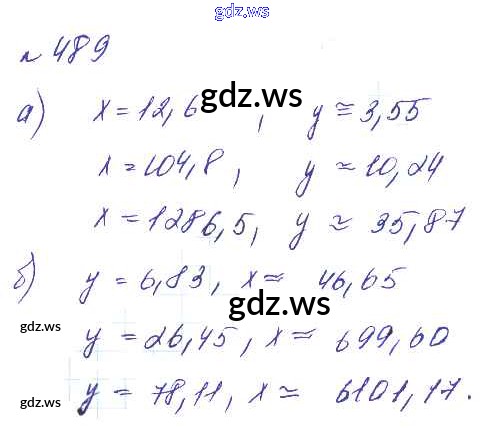 gdz.ws
№ 489
а) x = 12,6 gdz.ws, y ≈ 3,55
x = 104,8, y ≈ 10,24
x = 1286,5, y ≈ 35,87
б) y = 6,83, x ≈ 46,65
gdz.ws
gdz.ws y = 26,45, x ≈ 699,60
y = 78,11, x ≈ 6101,17.
gdz.ws